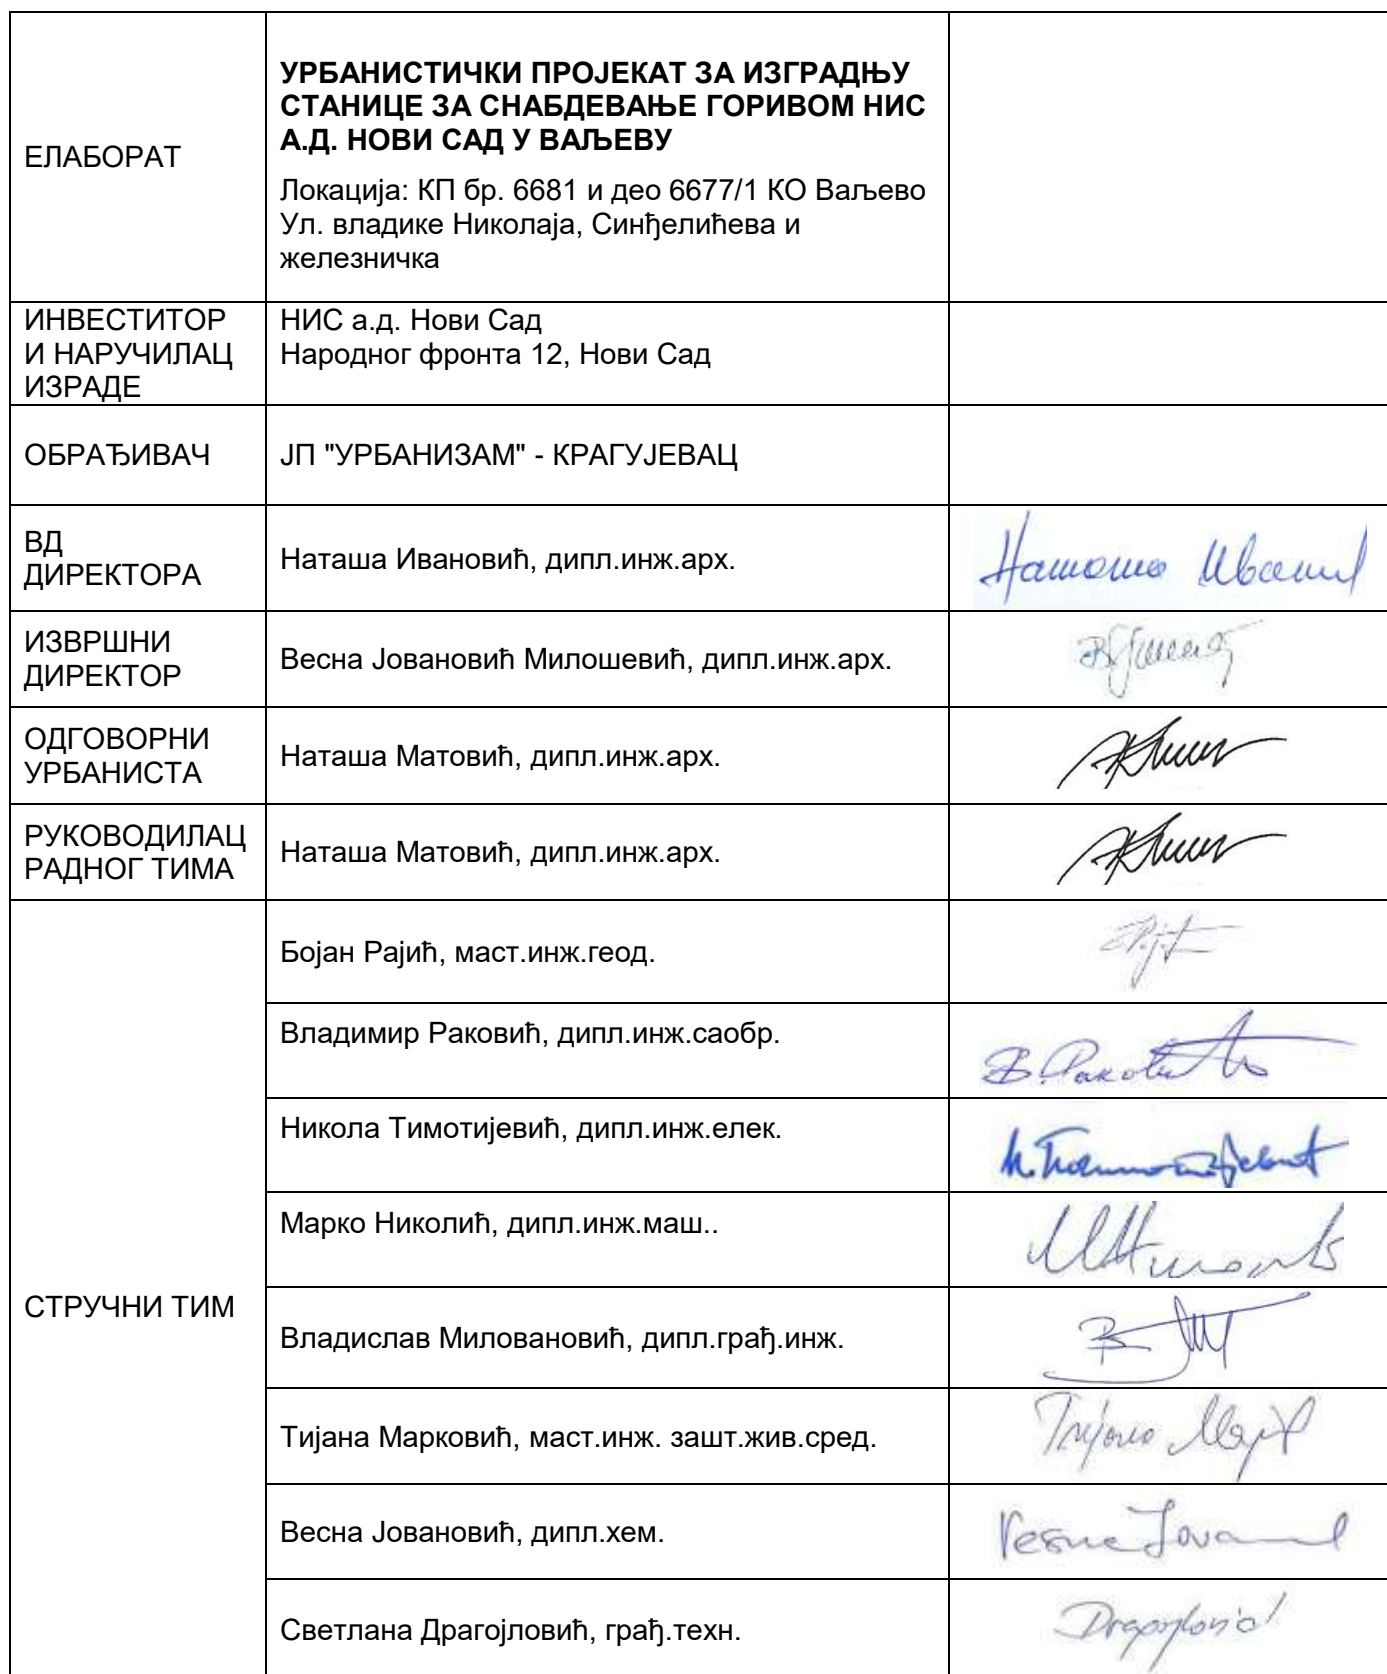 ЕЛАБОРАТ
УРБАНИСТИЧКИ ПРОЈЕКАТ ЗА ИЗГРАДЊУ
СТАНИЦЕ ЗА СНАБДЕВАЊЕ ГОРИВОМ НИС
А.Д. НОВИ САД У ВАЉЕВУ
Локација: КП бр. 6681 и део 6677/1 КО Ваљево
Ул. владике Николаја, Синђелићева и
железничка
ИНВЕСТИТОР
И НАРУЧИЛАЦ
ИЗРАДЕ
НИС а.д. Нови Сад
Народног фронта 12, Нови Сад
ОБРАЂИВАЧ
ЈП "УРБАНИЗАМ" - КРАГУЈЕВАЦ
ВД
ДИРЕКТОРА
Наташа Ивановић, дипл.инж.арх.
ИЗВРШНИ
ДИРЕКТОР
Весна Јовановић Милошевић, дипл.инж.арх.
ОДГОВОРНИ
УРБАНИСТА
Наташа Матовић, дипл.инж.арх.
РУКОВОДИЛАЦ
РАДНОГ ТИМА
Наташа Матовић, дипл.инж.арх.
СТРУЧНИ ТИМ
Бојан Рајић, маст.инж.геод.
Владимир Раковић, дипл.инж.саобр.
Никола Тимотијевић, дипл.инж.елек.
Марко Николић, дипл.инж.маш..
Владислав Миловановић, дипл.грађ.инж.
Тијана Марковић, маст.инж. зашт.жив.сред.
Весна Јовановић, дипл.хем.
Светлана Драгојловић, грађ.техн.